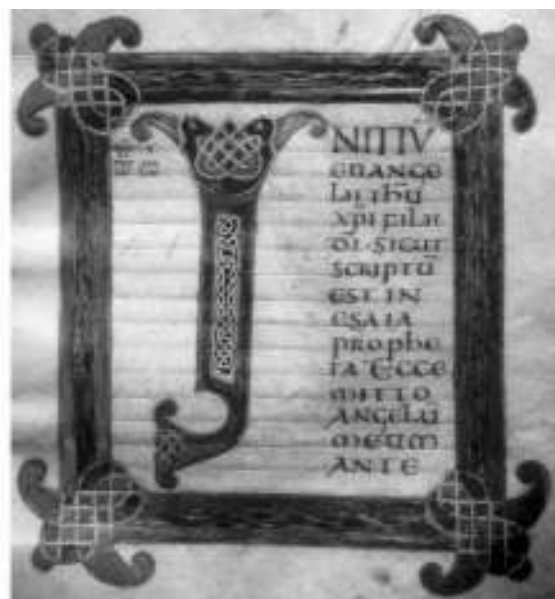 INITIŪ
EUANGE
LII IHŪ
XPĪ FILII
DĪ·SICUT
SCRIPTŪ
EST IN
ESAIA
PROPhE
TA ECCE
MITTO
ANGELU
MEUM
ANTE